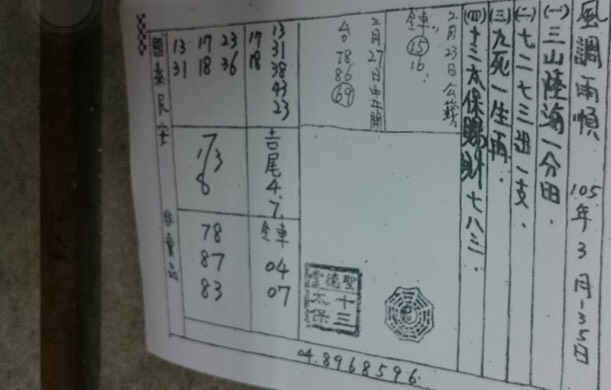 風調雨順 105年3月1-35日
(一)三山陸海一分田.
(二)七二七三逗一支.
(三)九死一生再.
(四)十三太保賜財七八三.
2月23日公籤
⑮
16.
2月27日中午開
台 78
86
69
13
31
38
43
23
17
18
17 23
18 36
13
31
吉尾4.7.
04
07
78
87
83
國泰民安
非賣品
聖德雲
十三太保
04.8968596.